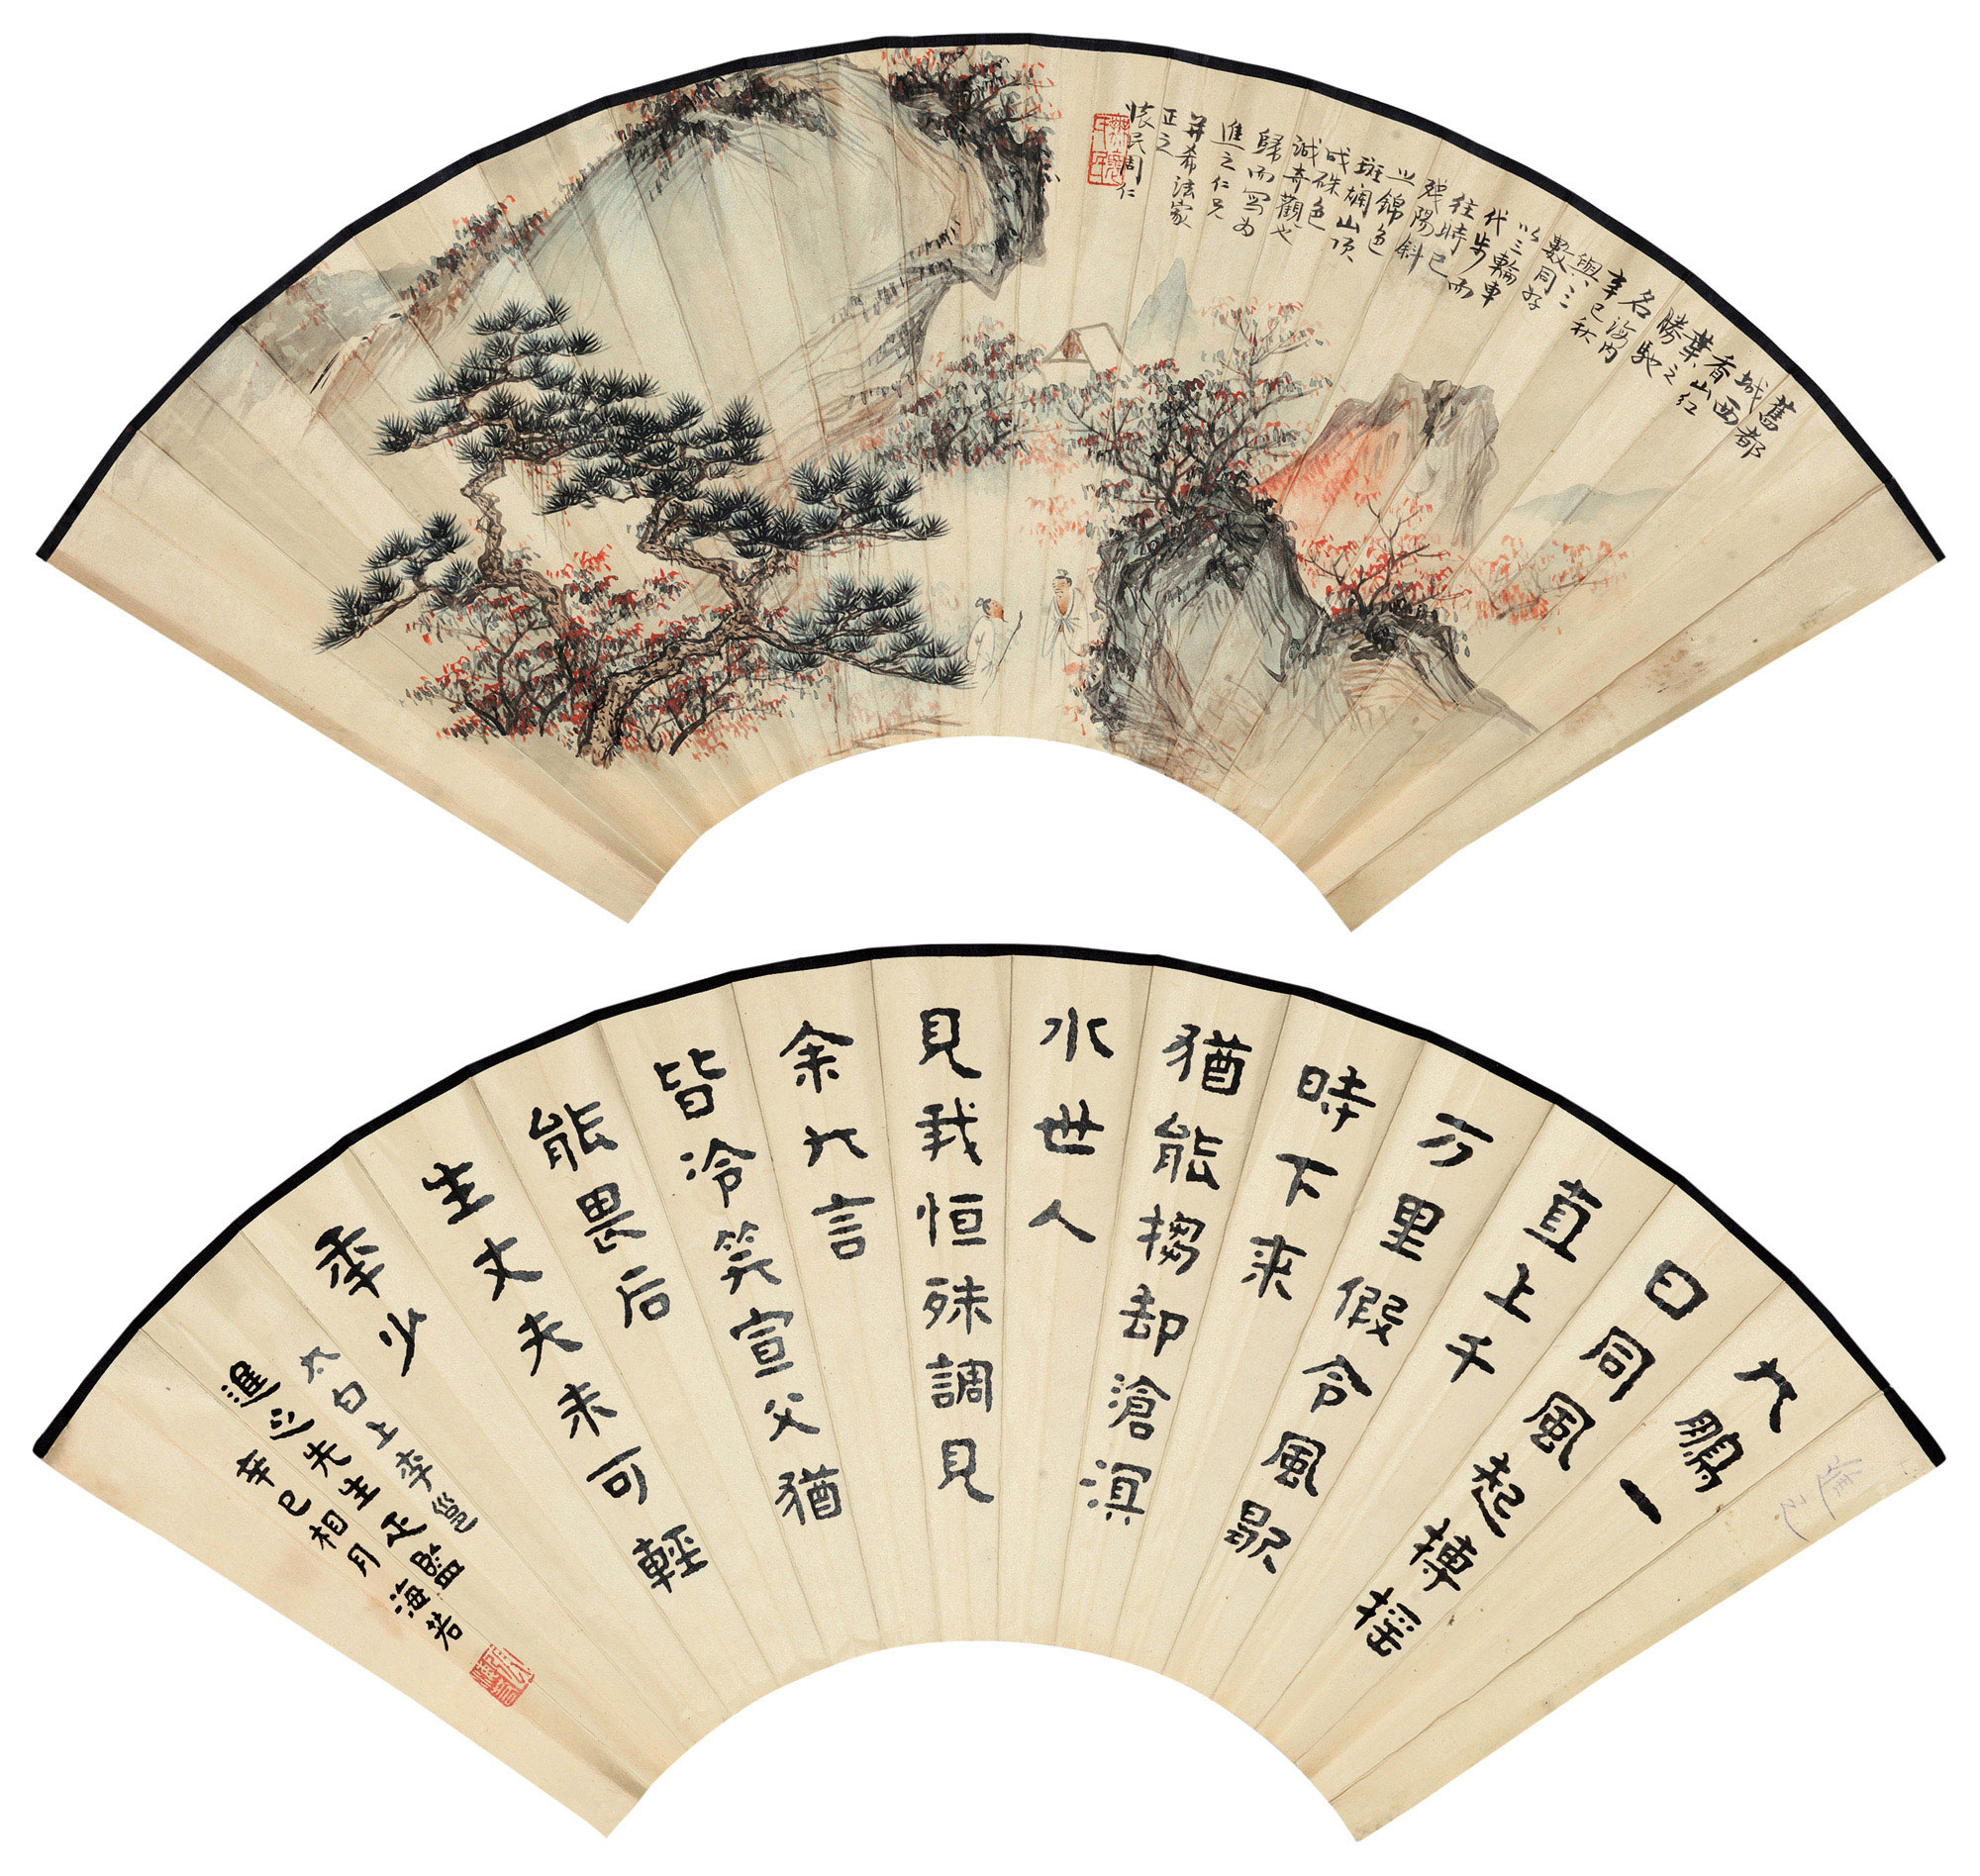 舊都
城西
香山红
葉之
勝
名馳
海內
辛已秋
與二三
數同好
以三輪車
代步
往時已而
殘陽斜
錦色
斑斕山頂
成硃色
誠奇觀也
歸而写为
進之仁兄
并希法家
正之
懐民周仁
大鵬一
日同風起摶摇
直上千
万里假令風歇
時下来
猶能搊却滄溟
水世人
見我恒殊調見
余大言
皆冷笑宣父猶
能畏后
生丈夫未可輕
季少
太白上李邕
進之先生正臨
辛已相月 海若
進之